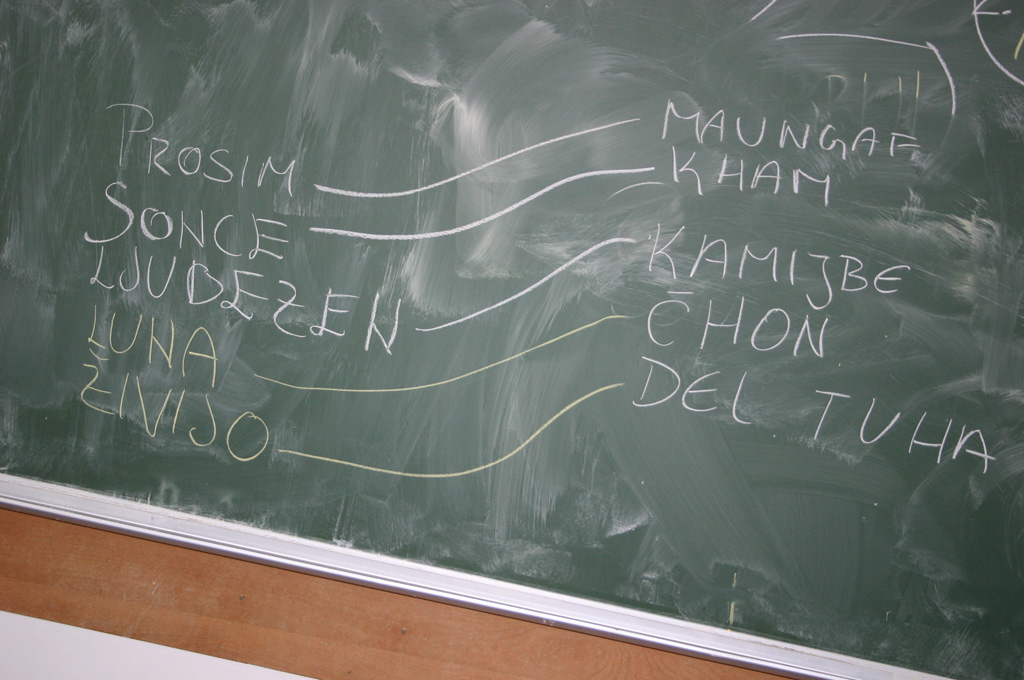 PROSIM MAUNGAF
SONCE KHAM
LJUBEZEN KAMIJBE
LUNA ČHON
ŽIVIJO DEL TUHA